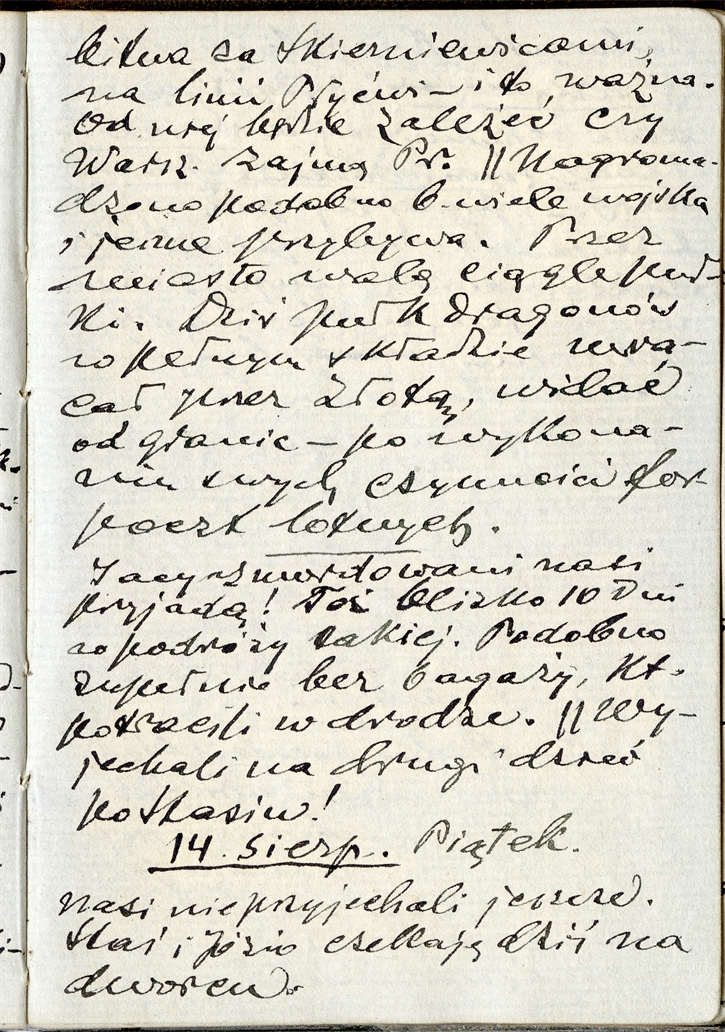 bitwa za Skierniewicami,
na linii Pyćwi – i to ważna.
Od niej będzie zależeć czy
Warsz. zajmą Pr. || Nagroma-
dzono podobno b. wiele wojska
i jeszcze przybywa. Przez
miasto walą ciągle puł-
ki. Dziś pułk dragonów
w pełnym składzie wra-
cał przez Złotą, widać
od granic – po wykona-
niu swych czynności for-
poczt lotnych.
Jacy zmordowani nasi
przyjadą! Toż blizko 10 dni
w podróży takiej. Podobno
zupełnie bez bagaży, kt.
potracili w drodze. || Wy-
jechali na drugi dzień
po Stasiu!
14. sierp. Piątek.
Nasi nie przyjechali jeszcze.
Staś i Józio czekają dziś na
dworcu.